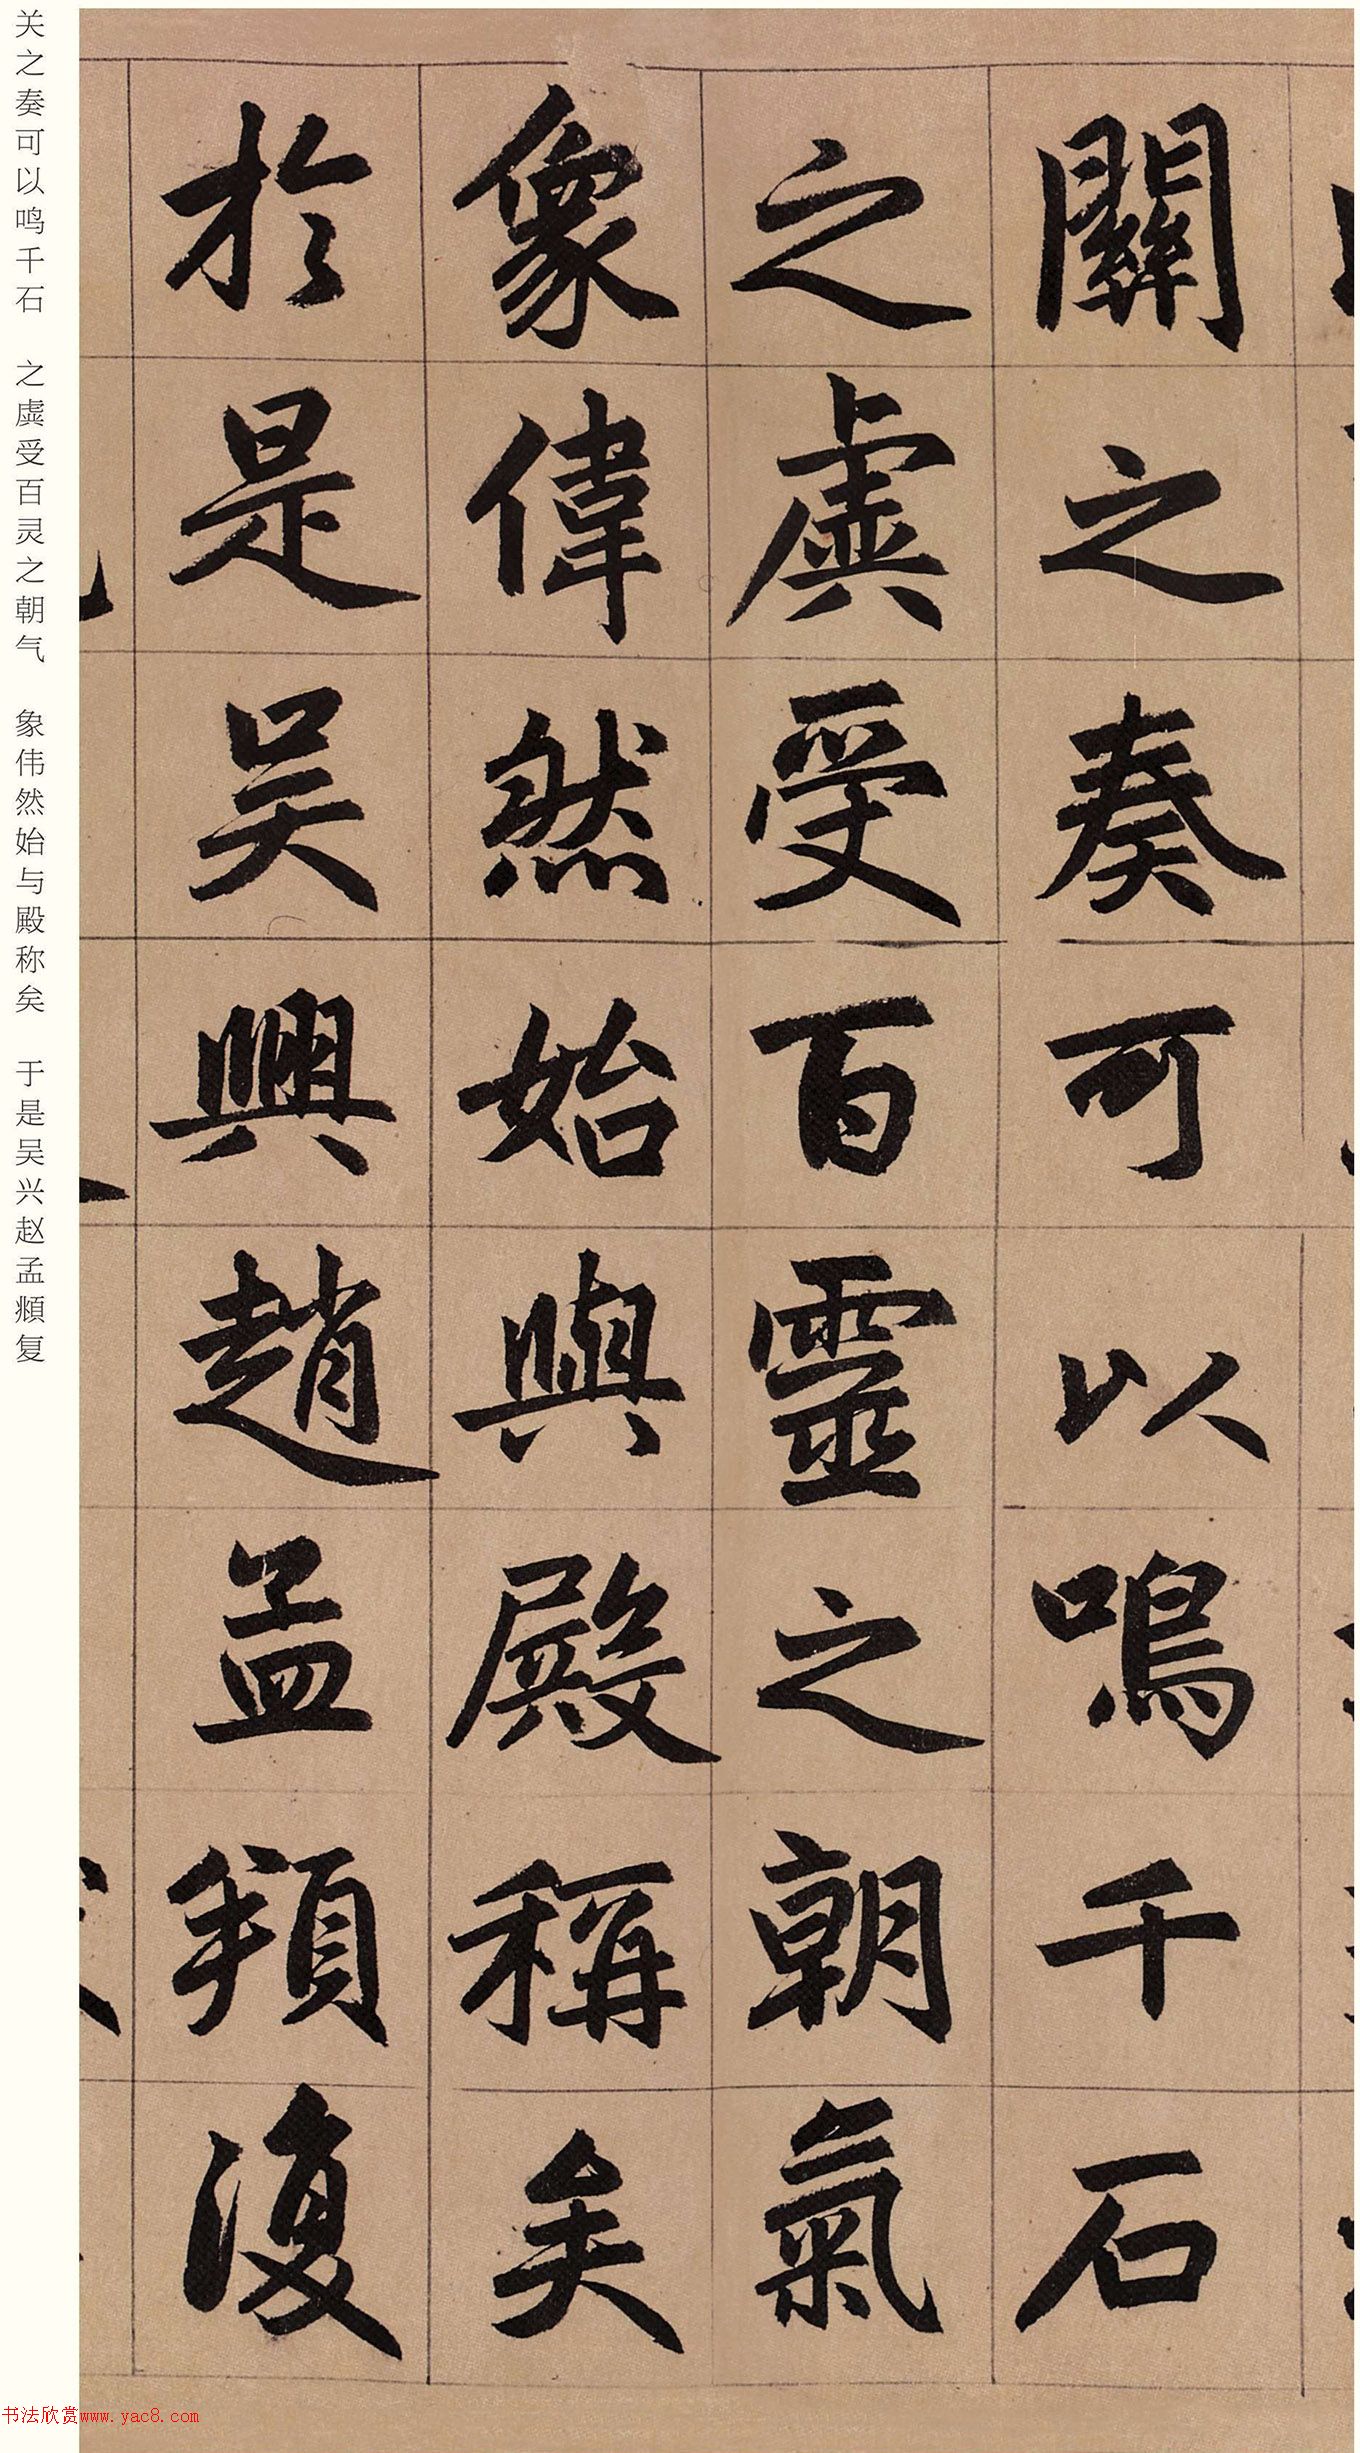 關之奏可以鳴千石
之虡受百靈之朝氣
象偉然始與殿稱矣
於是吳興趙孟頫復
关之奏可以鸣千石 之虡受百灵之朝气 象伟然始与殿称矣 于是吴兴赵孟頫复
书法欣赏www.yac8.com